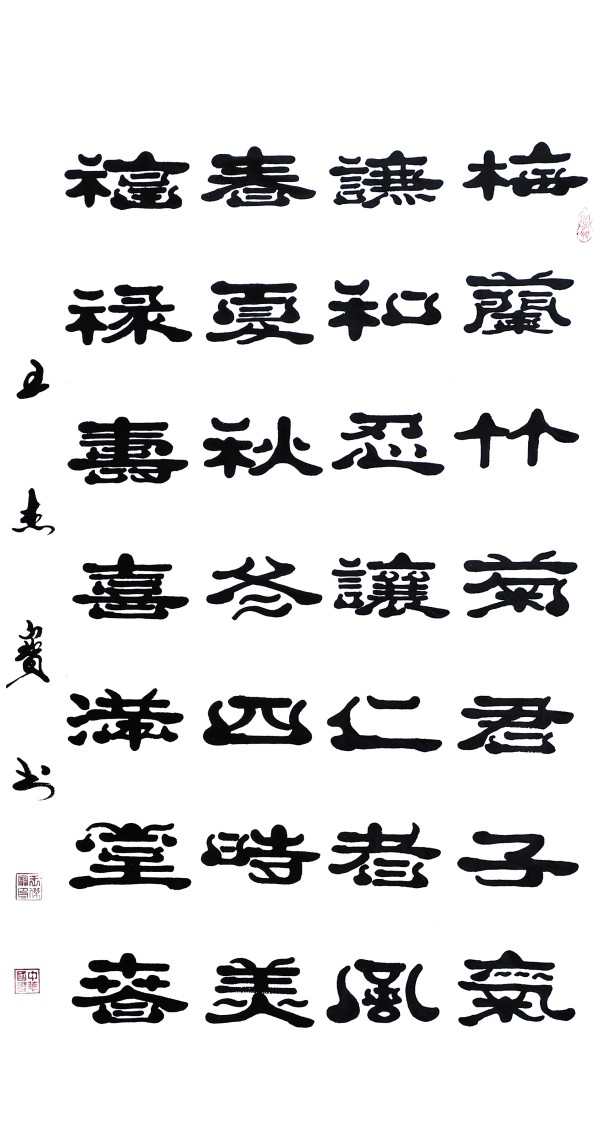 梅蘭竹菊君子氣
謙和忍讓仁者風
春夏秋冬四時美
福禄壽喜滿堂春
王杰寶书